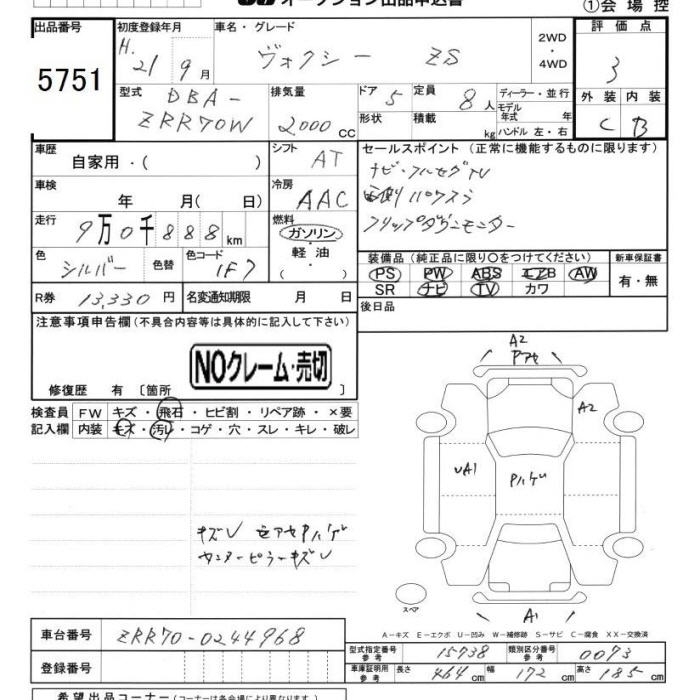 オークション出品申込書
①会場控
出品番号
5751
初度登録年月
H. 21 9月
車名・グレード
ヴォクシー ZS
2WD
・
4WD
評価点
3
外装 内装
C B
型式
DBA-
ZRR70W
排気量
2000 CC
ドア 5
形状
定員 8人
積載 kg
ディーラー・並行
モデル
年式 年
ハンドル 左・右
車歴
自家用・( )
シフト
AT
セールスポイント (正常に機能するものに限ります)
ナビ・フルセグTV
両側パワスラ
フリップダウンモニター
車検
年 月( 日)
冷房
AAC
走行
9万0千888km
燃料
ガソリン
軽油
( )
色
シルバー
色替
色コード
1F7
装備品 (純正品に限り○をつけてください)
PS PW ABS エアB AW
SR ナビ TV カワ
新車保証書
有・無
R券 13,330円
名変通知期限 月 日
後日品
注意事項申告欄 (不具合内容等は具体的に記入して下さい)
NOクレーム・売切
修復歴 有 〔箇所 〕
検査員
記入欄
FW キズ・飛石・ヒビ割・リペア跡・×要
内装 キズ・汚レ・コゲ・穴・スレ・キレ・破レ
キズU
センターピラーキズU
A2
A2
UA1
Pハゲ
A1
スペア
A-キズ E-エクボ U-凹み W-補修跡 S-サビ C-腐食 XX-交換済
車台番号
ZRR70-0244968
型式指定番号
参考
15738
類別区分番号
参考
0073
登録番号
車庫証明用
参考
長さ 464cm 幅 172cm 高さ 185cm
希望出品コーナー (コーナーは各会場により異なります。)